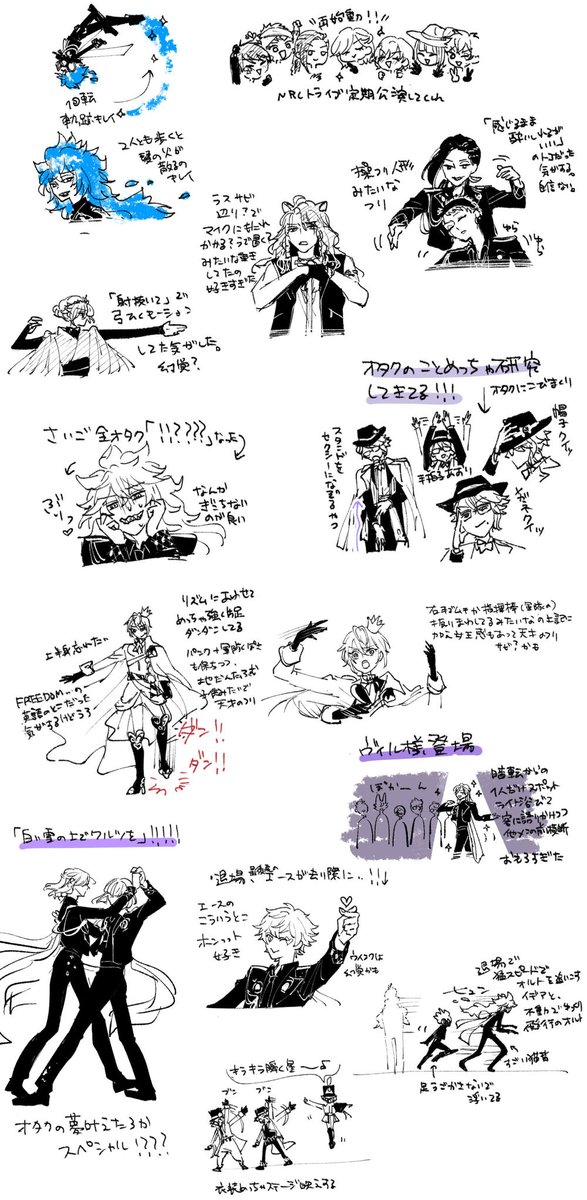 回転
軌跡キレイ
"再始動!!"
NRCトライブ定期公演してくれ
2人とも歩くと
頭の火が
散るの
キレイ
「感じるまま
酔いしれるが
いい」
のトコだった
気がする。
自信ない。
操り人形
みたいな
フリ
ゆら
ゆら
ラスサビ
辺り?で
マイクにもたれ
かかる?
みたいな動き
してたの
好きすぎた
「射抜いて」で
弓っぽいモーション
してた気がした。
幻覚?
オタクのことめっちゃ研究
してきてる!!!
オタクにこびまくり
帽子クイッ
スタンドを
セクシーになでるやつ
手拍子あおり
メガネクイッ
さいご全オタク「!!????」なよ
ぶりっ♡
なんか
ぎこちない
のが良い
リズムにあわせて
めっちゃ強く足
ダンダンしてる
パンク+軍隊っぽさ
も保ちつつ、
地だんだふむ
子供みたいで
天才のフリ
上半身忘れた
FREEDOM...の
英語のとこだった
気がするけどうろ
ダン!!
ダン!!
指揮棒(軍隊の)
振りまわしてるみたいなの上記に
加え女王感もあって天才のフリ
サビ?かも
ヴィル様、登場
ぽかーん
暗転からの
1人だけスポット
ライト浴びて
客に語りかけつつ
他メンの前横断
おもろすぎた
「白い雪の上でワルツを」!!!!!
オタクの夢叶えたろか
スペシャル!???
退場、最後のエースが去り際に..!!
エースの
こういうとこ
ホンット
好き
ウインクは
幻覚かも
退場で
猛スピードで
オルトを追いこす
イデアと、
飛行のオルト
ピュン
すごい猫背
足うごかさないで
浮いてる
キラキラ瞬く星〜♪
ブン
ブン
衣装めっちゃステージ映えする